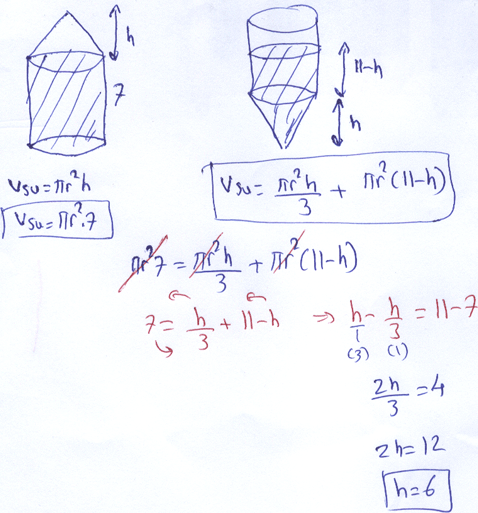 h
7
11-h
h
Vsu = πr²h
Vsu = πr².7
Vsu = πr²h/3 + πr²(11-h)
πr²7 = πr²h/3 + πr²(11-h)
7 = h/3 + 11-h ⇒ h/1 - h/3 = 11-7
(3) (1)
2h/3 = 4
2h = 12
h = 6